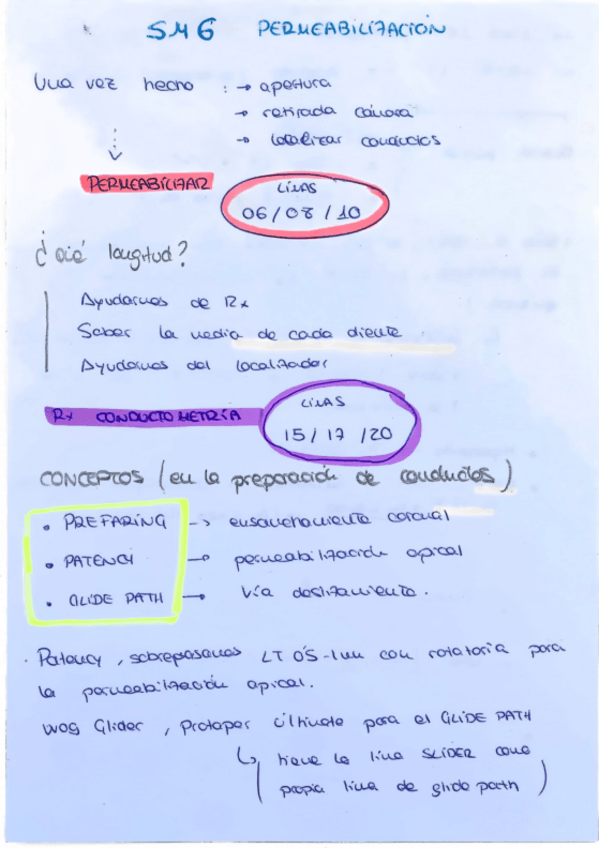 SM6 PERMEABILIZACIÓN
Una vez hecho : → apertura
→ retirada cámara
→ localizar conductos
PERMEABILIZAR
LIMAS
06/08/10
¿Qué longitud?
Ayudarnos de Rx
Saber la media de cada diente.
Ayudarnos del localizador
Rx CONDUCTOMETRÍA
LIMAS
15/17/20
CONCEPTOS (en la preparación de conductos)
• PREFARING → ensanchamiento coronal
• PATENCY → permeabilización apical
• GLIDE PATH → Vía deslizamiento.
· Patency, sobrepasamos LT 0'5-1mm con rotatoria para
la permeabilización apical.
WOG Glider, Protaper Ultimate para el GLIDE PATH
↳ tiene la lima SLIDER como
propia lima de glide path)